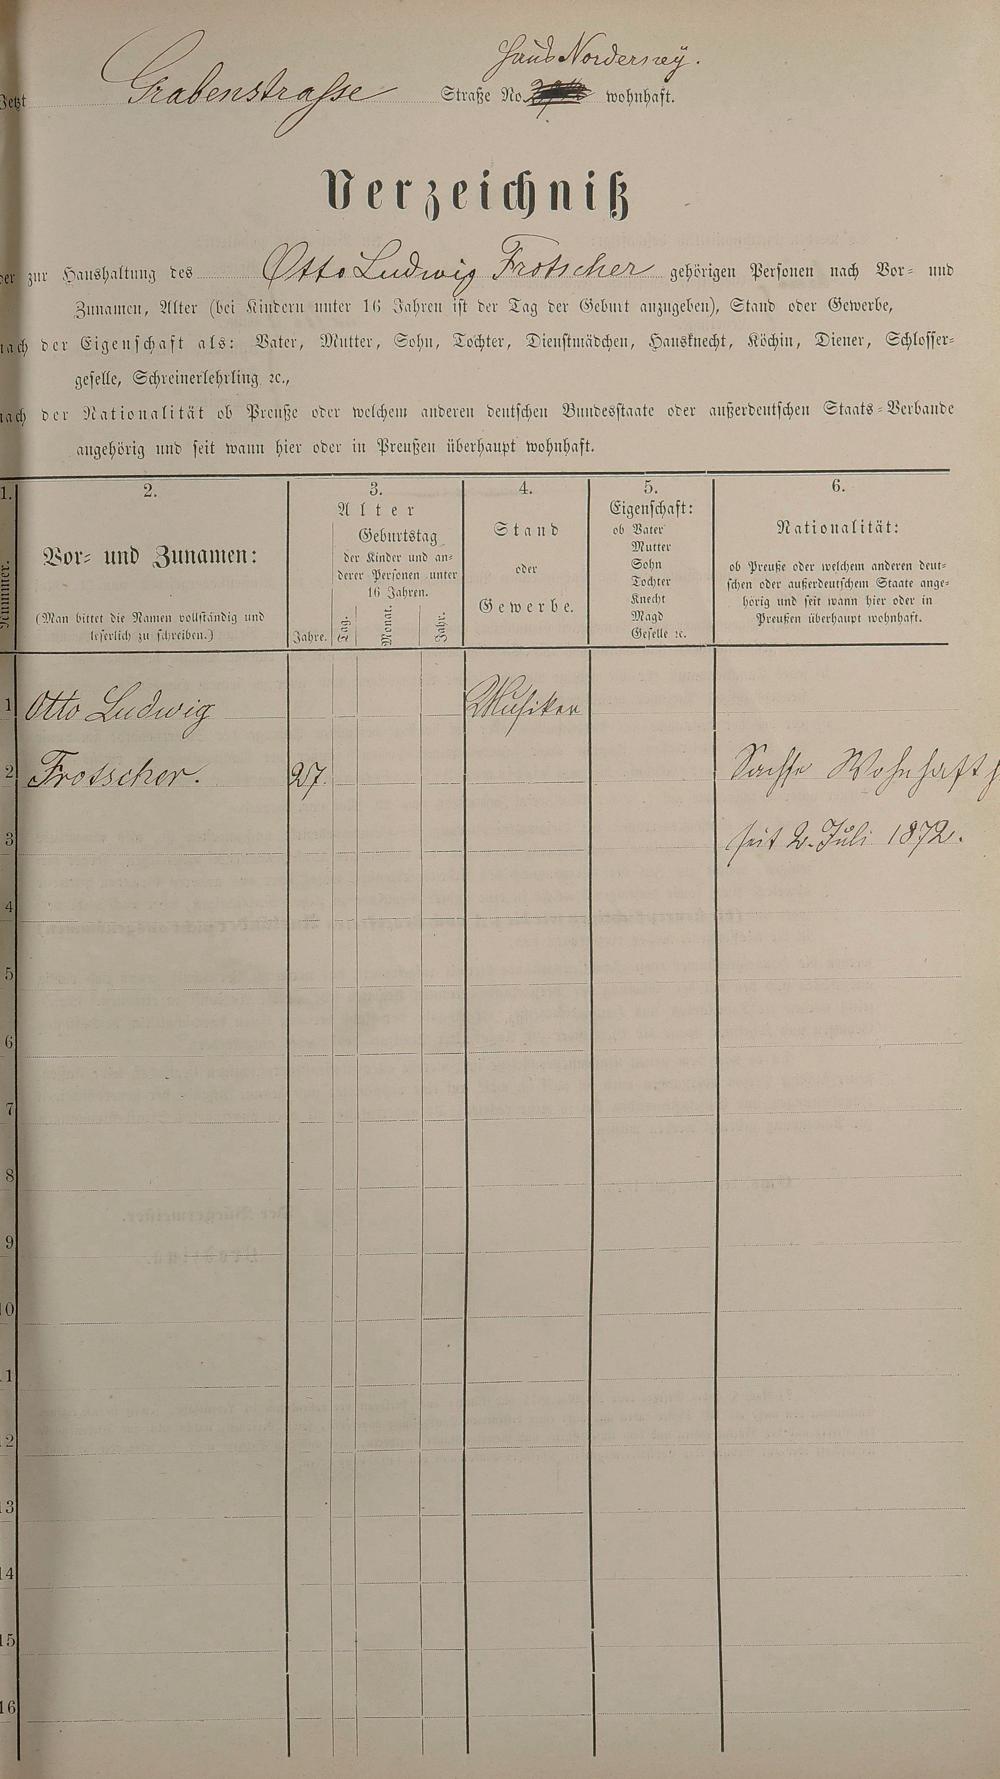 Haus Norderney.
Jetzt Grabenstrasse Straße No. wohnhaft.
Verzeichniß
der zur Haushaltung des Otto Ludwig Frotscher gehörigen Personen nach Vor- und
Zunamen, Alter (bei Kindern unter 16 Jahren ist der Tag der Geburt anzugeben), Stand oder Gewerbe,
nach der Eigenschaft als: Vater, Mutter, Sohn, Tochter, Dienstmädchen, Hausknecht, Köchin, Diener, Schlosser-
geselle, Schreinerlehrling ꝛc.,
nach der Nationalität ob Preuße oder welchem anderen deutschen Bundesstaate oder außerdeutschen Staats-Verbande
angehörig und seit wann hier oder in Preußen überhaupt wohnhaft.
1.
Nummer.
2.
Vor- und Zunamen:
(Man bittet die Namen vollständig und
leserlich zu schreiben.)
3.
Alter
Geburtstag
der Kinder und an-
derer Personen unter
16 Jahren.
Jahre.
Tag.
Monat.
Jahr.
4.
Stand
oder
Gewerbe.
5.
Eigenschaft:
ob Vater
Mutter
Sohn
Tochter
Knecht
Magd
Geselle ꝛc.
6.
Nationalität:
ob Preuße oder welchem anderen deut-
schen oder außerdeutschem Staate ange-
hörig und seit wann hier oder in
Preußen überhaupt wohnhaft.
1 Otto Ludwig Musiker
2 Frotscher. 27. Sachse Wohnhaft
3 seit 2. Juli 1872.
4
5
6
7
8
9
10
11
12
13
14
15
16